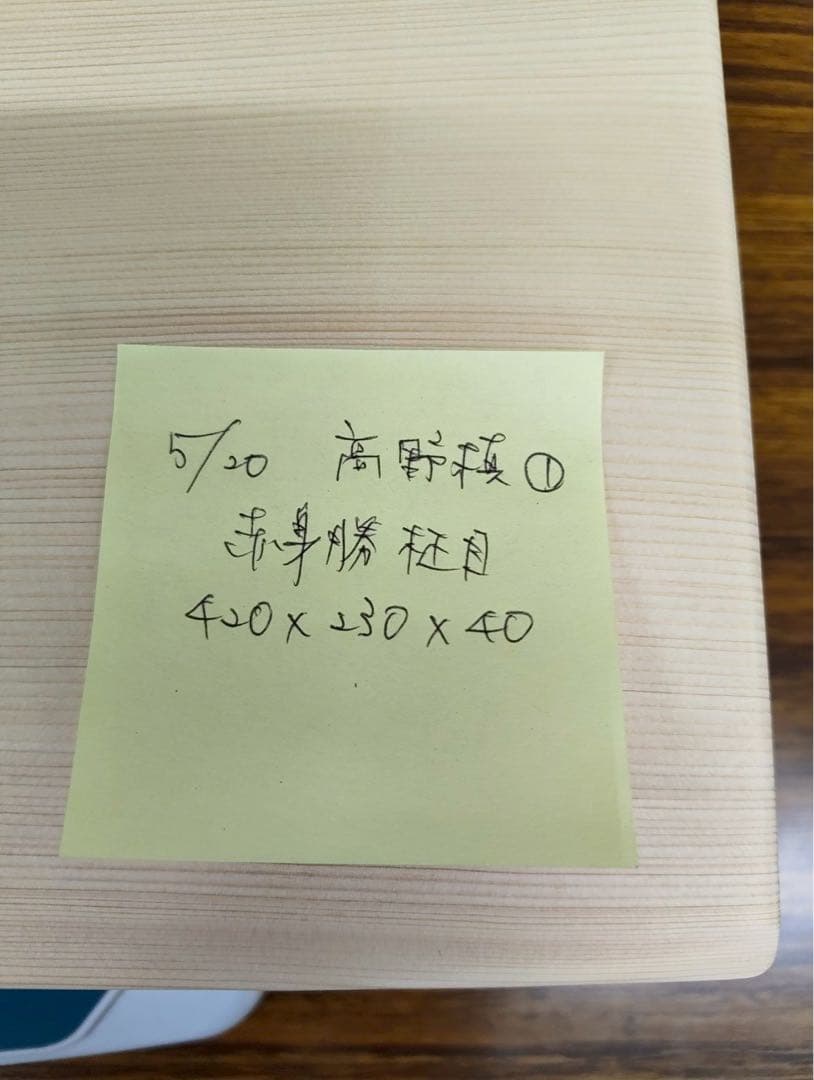 5/20 高野槙①
赤身勝 柾目
420×230×40